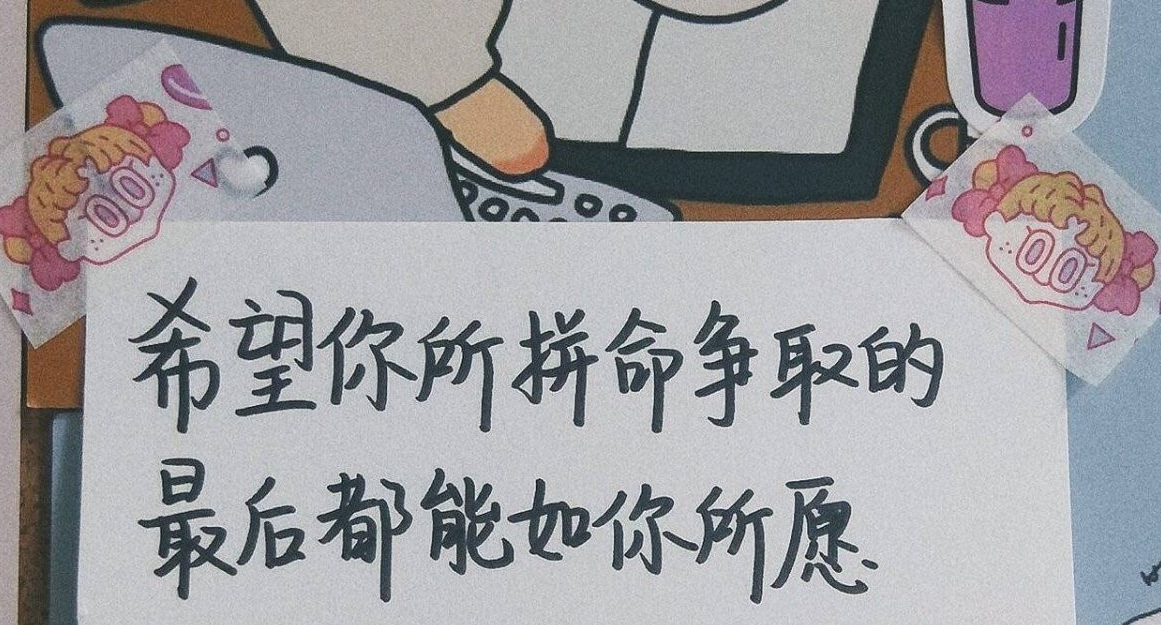 希望你所拼命争取的
最后都能如你所愿